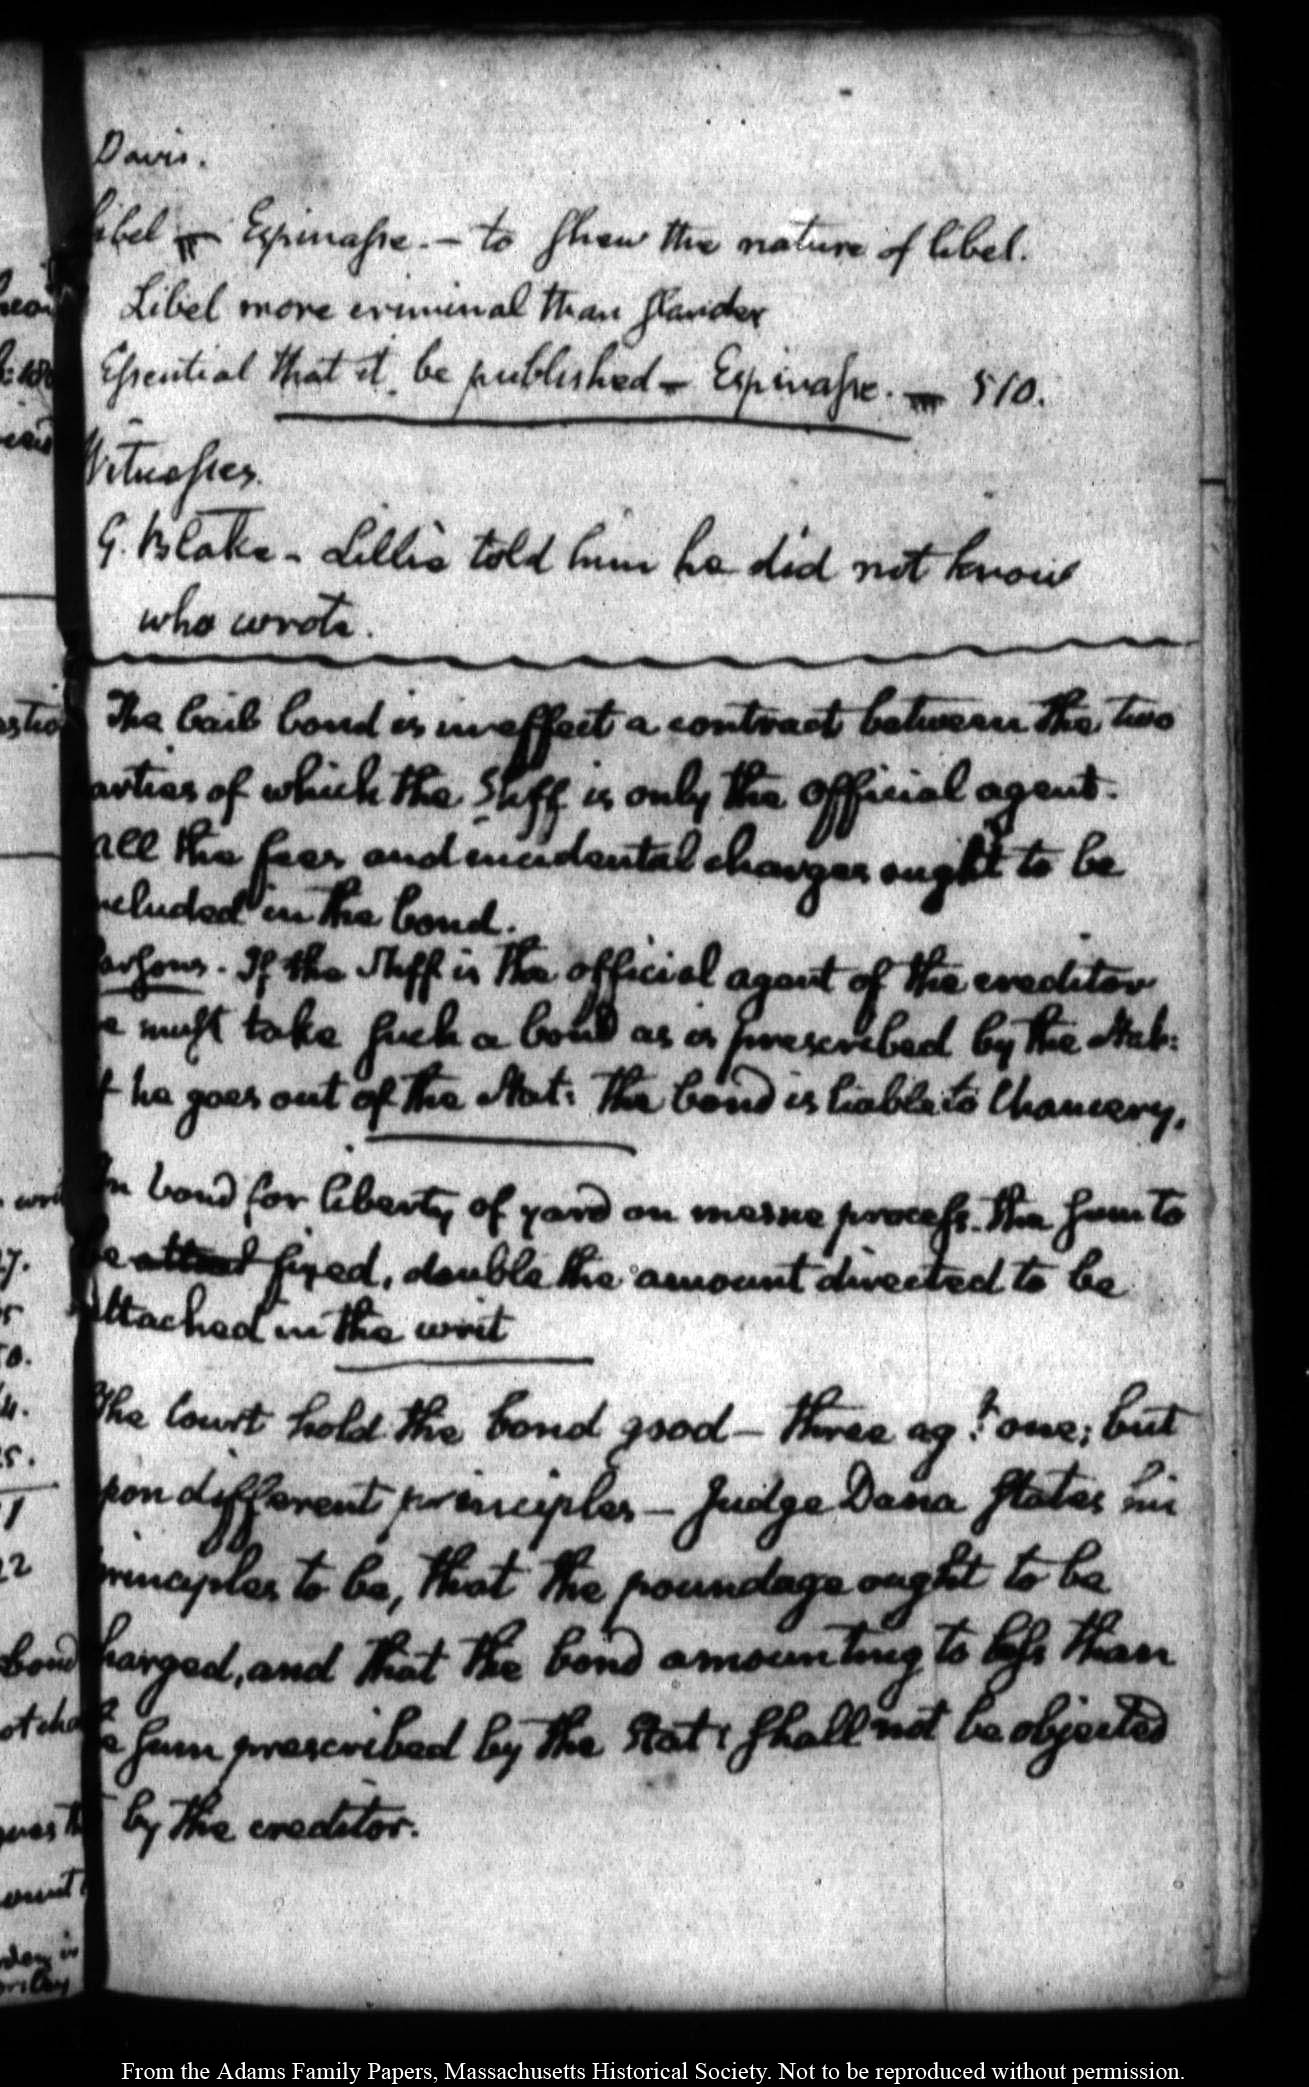 Davis.
Libel — Espinasse. — to shew the nature of libel.
Libel more criminal than slander
Essential that it be published — Espinasse. — 510.
Witnesses.
G. Blake - Lillie told him he did not know
who wrote.
The bail bond is in effect a contract between the two
arties of which the Shff is only the official agent.
All the fees and incidental charges ought to be
ncluded in the bond.
Parsons. If the Shff is the official agent of the creditor
e must take such a bond as is prescribed by the Stat:
f he goes out of the Stat: the bond is liable to Chancery,
In bond for liberty of yard on mesne process. the sum to
be fixed, double the amount directed to be
attached in the writ
The Court hold the bond good — three agt. one; but
pon different principles — Judge Dana states his
principles to be, that the poundage ought to be
harged, and that the bond amounting to less than
e sum prescribed by the Stat: shall not be objected
by the creditor.
From the Adams Family Papers, Massachusetts Historical Society. Not to be reproduced without permission.